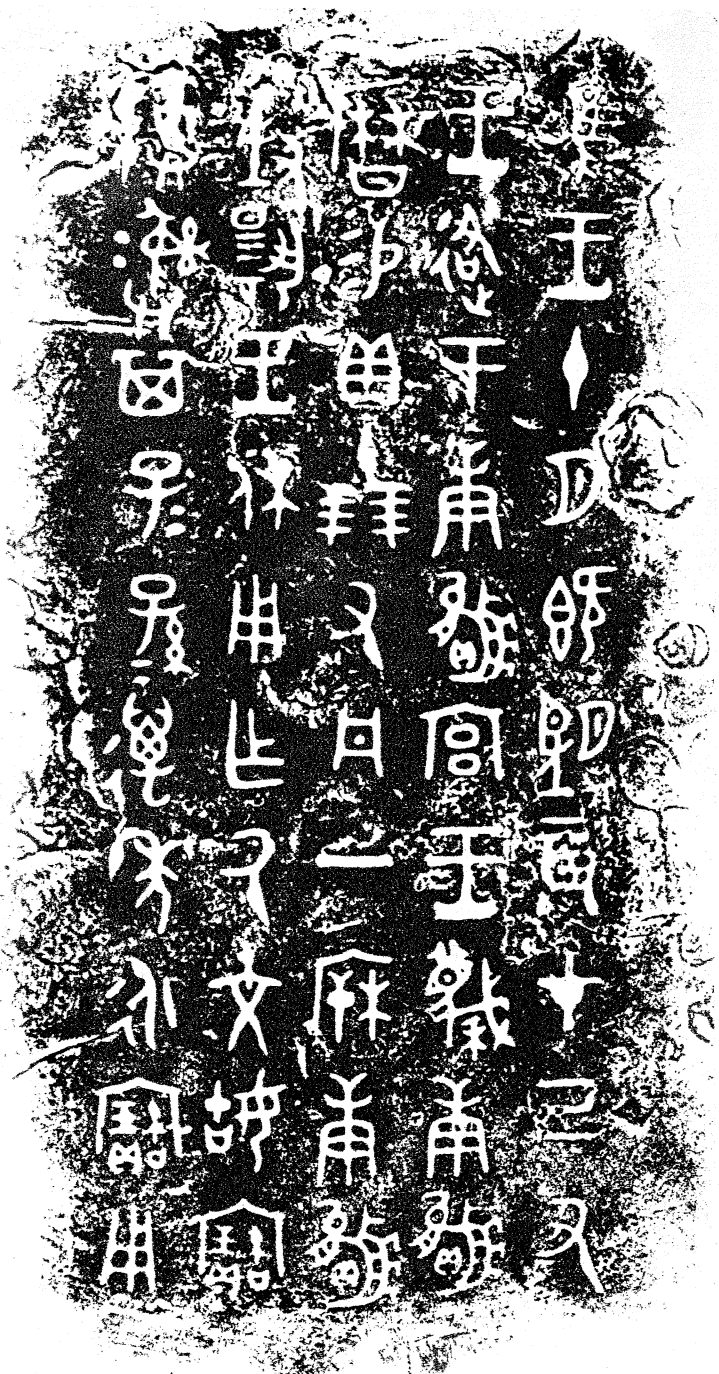 隹王十月既望辰才己丑
王各于庚嬴宮王蔑庚嬴
曆易貝十朋又丹一㭒庚嬴
對揚王休用乍氒文姑寶
尊彝其子子孫孫萬年永寶用